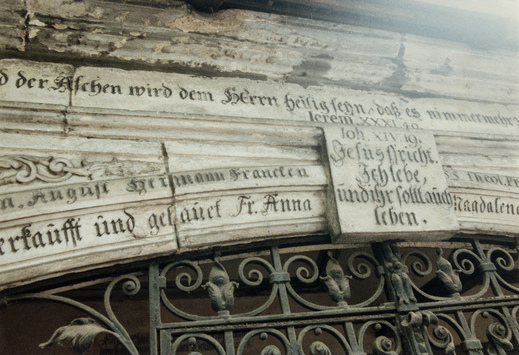 d der Aschen wird dem Herrn heilig seyn, daß es nimmermehr z
Ierem. XXXI. 40.
n. August Hermann Francken
erkaufft und gebauet Fr. Anna
Ioh. XIV. 19.
Jesus spricht.
Ich lebe,
und ihr sollt auch
leben.
S. Theol. Pr
Magdalena